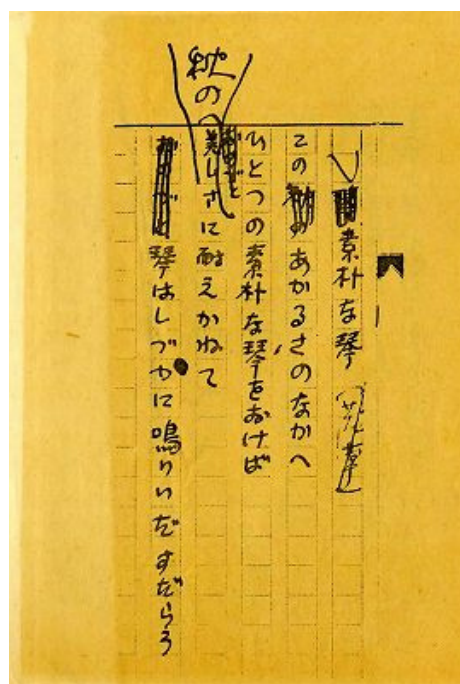 素朴な琴
このあかるさのなかへ
ひとつの素朴な琴をおけば
秋の美しさに耐えかねて
琴はしづかに鳴りいだすだらう